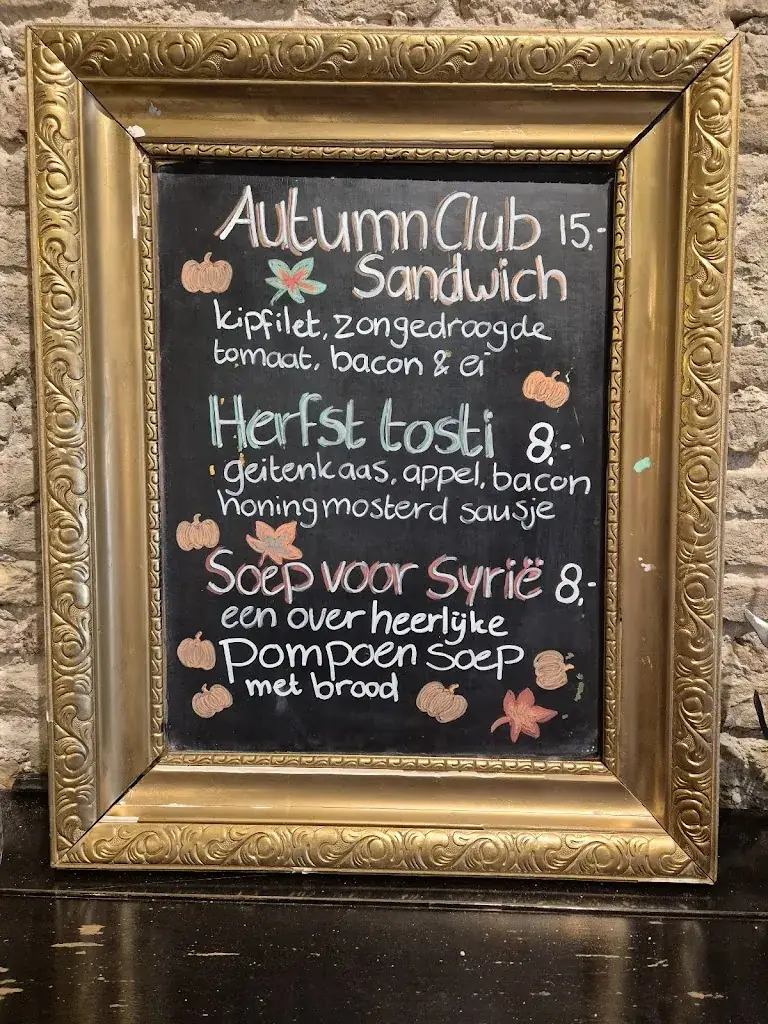 Autumn Club 15,-
Sandwich
kipfilet, zongedroogde
tomaat, bacon & ei
Herfst tosti 8,-
geitenkaas, appel, bacon
honingmosterd sausje
Soep voor Syrië 8,-
een over heerlijke
pompoen soep
met brood